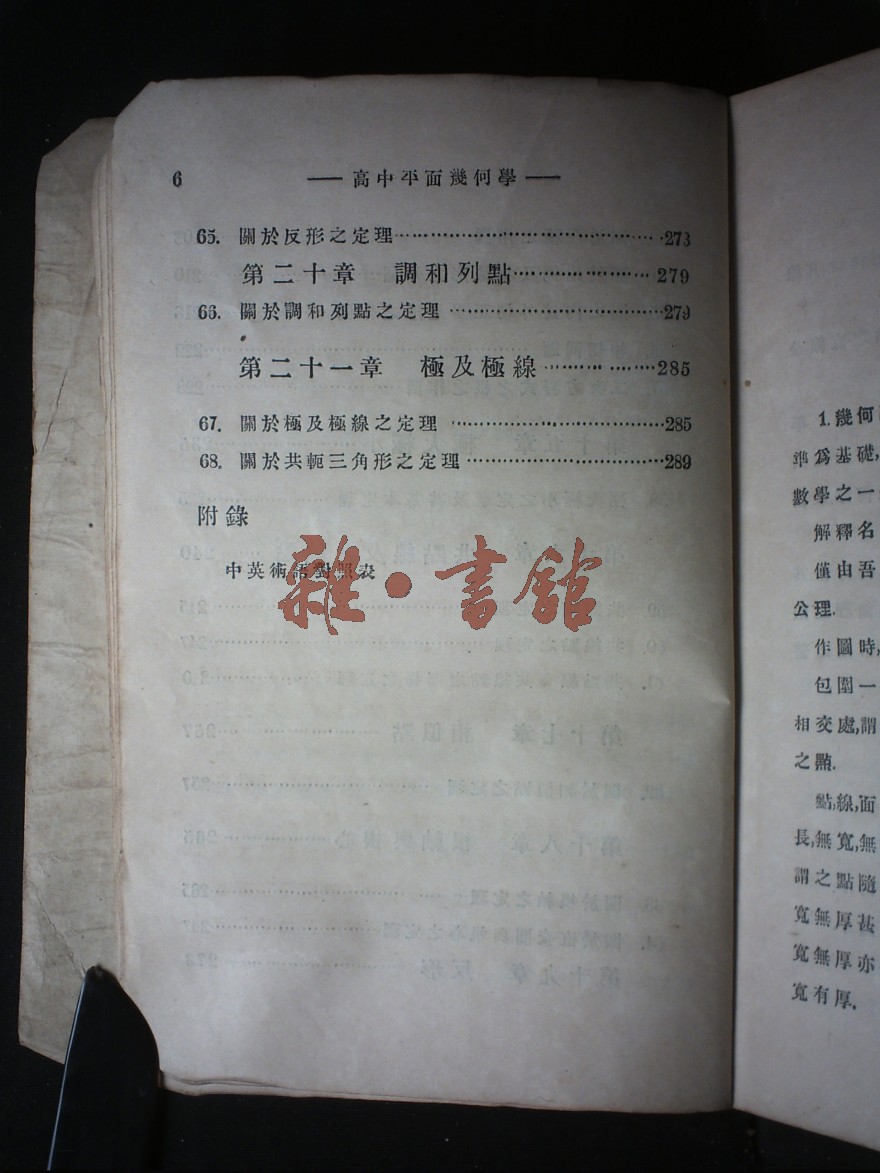 6 —— 高中平面幾何學 ——
65. 關於反形之定理……………………………………273
第二十章 調和列點…………………279
66. 關於調和列點之定理……………………………279
第二十一章 極及極線………………285
67. 關於極及極線之定理……………………………285
68. 關於共軛三角形之定理…………………………289
附錄
中英術語對照表
雜·書館
1.幾何
準爲基礎,
數學之一
解釋名
僅由吾
公理.
作圖時,
包圍一
相交處,謂
之點.
點,線,面
長,無寬,無
謂之點隨
寬無厚甚
寬無厚亦
寬有厚.